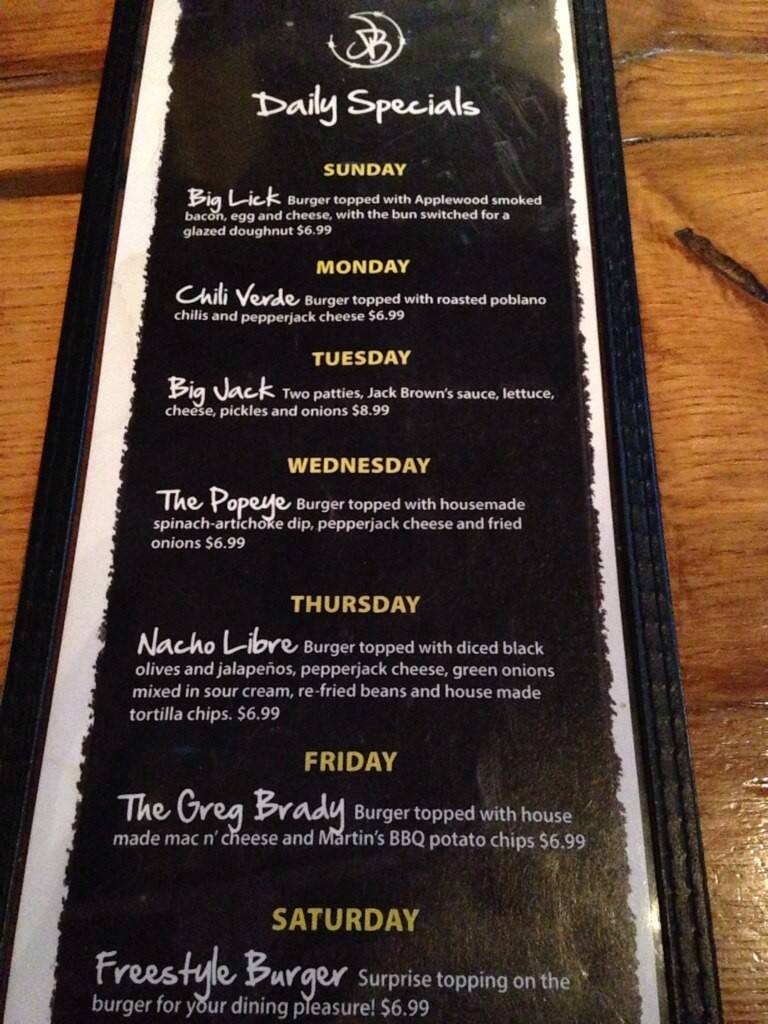 JB
Daily Specials
SUNDAY
Big Lick Burger topped with Applewood smoked
bacon, egg and cheese, with the bun switched for a
glazed doughnut $6.99
MONDAY
Chili Verde Burger topped with roasted poblano
chilis and pepperjack cheese $6.99
TUESDAY
Big Jack Two patties, Jack Brown's sauce, lettuce,
cheese, pickles and onions $8.99
WEDNESDAY
The Popeye Burger topped with housemade
spinach-artichoke dip, pepperjack cheese and fried
onions $6.99
THURSDAY
Nacho Libre Burger topped with diced black
olives and jalapeños, pepperjack cheese, green onions
mixed in sour cream, re-fried beans and house made
tortilla chips. $6.99
FRIDAY
The Greg Brady Burger topped with house
made mac n' cheese and Martin's BBQ potato chips $6.99
SATURDAY
Freestyle Burger Surprise topping on the
burger for your dining pleasure! $6.99